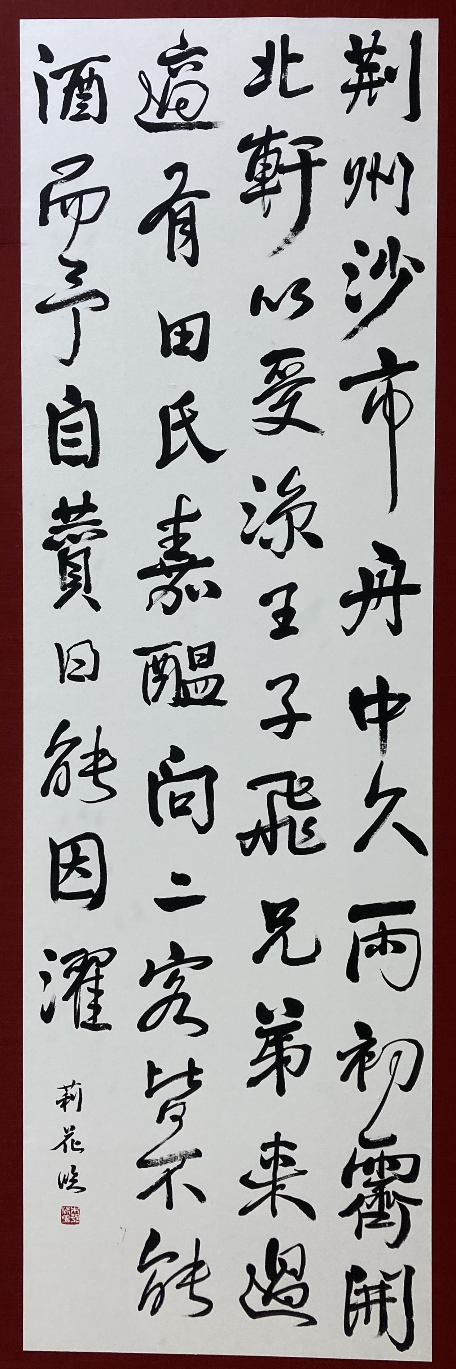 荆州沙市舟中久雨初霽開
北軒以受涼王子飛兄弟來過
適有田氏嘉醞问二客皆不能
酒而予自贊曰能因濯
莉花臨